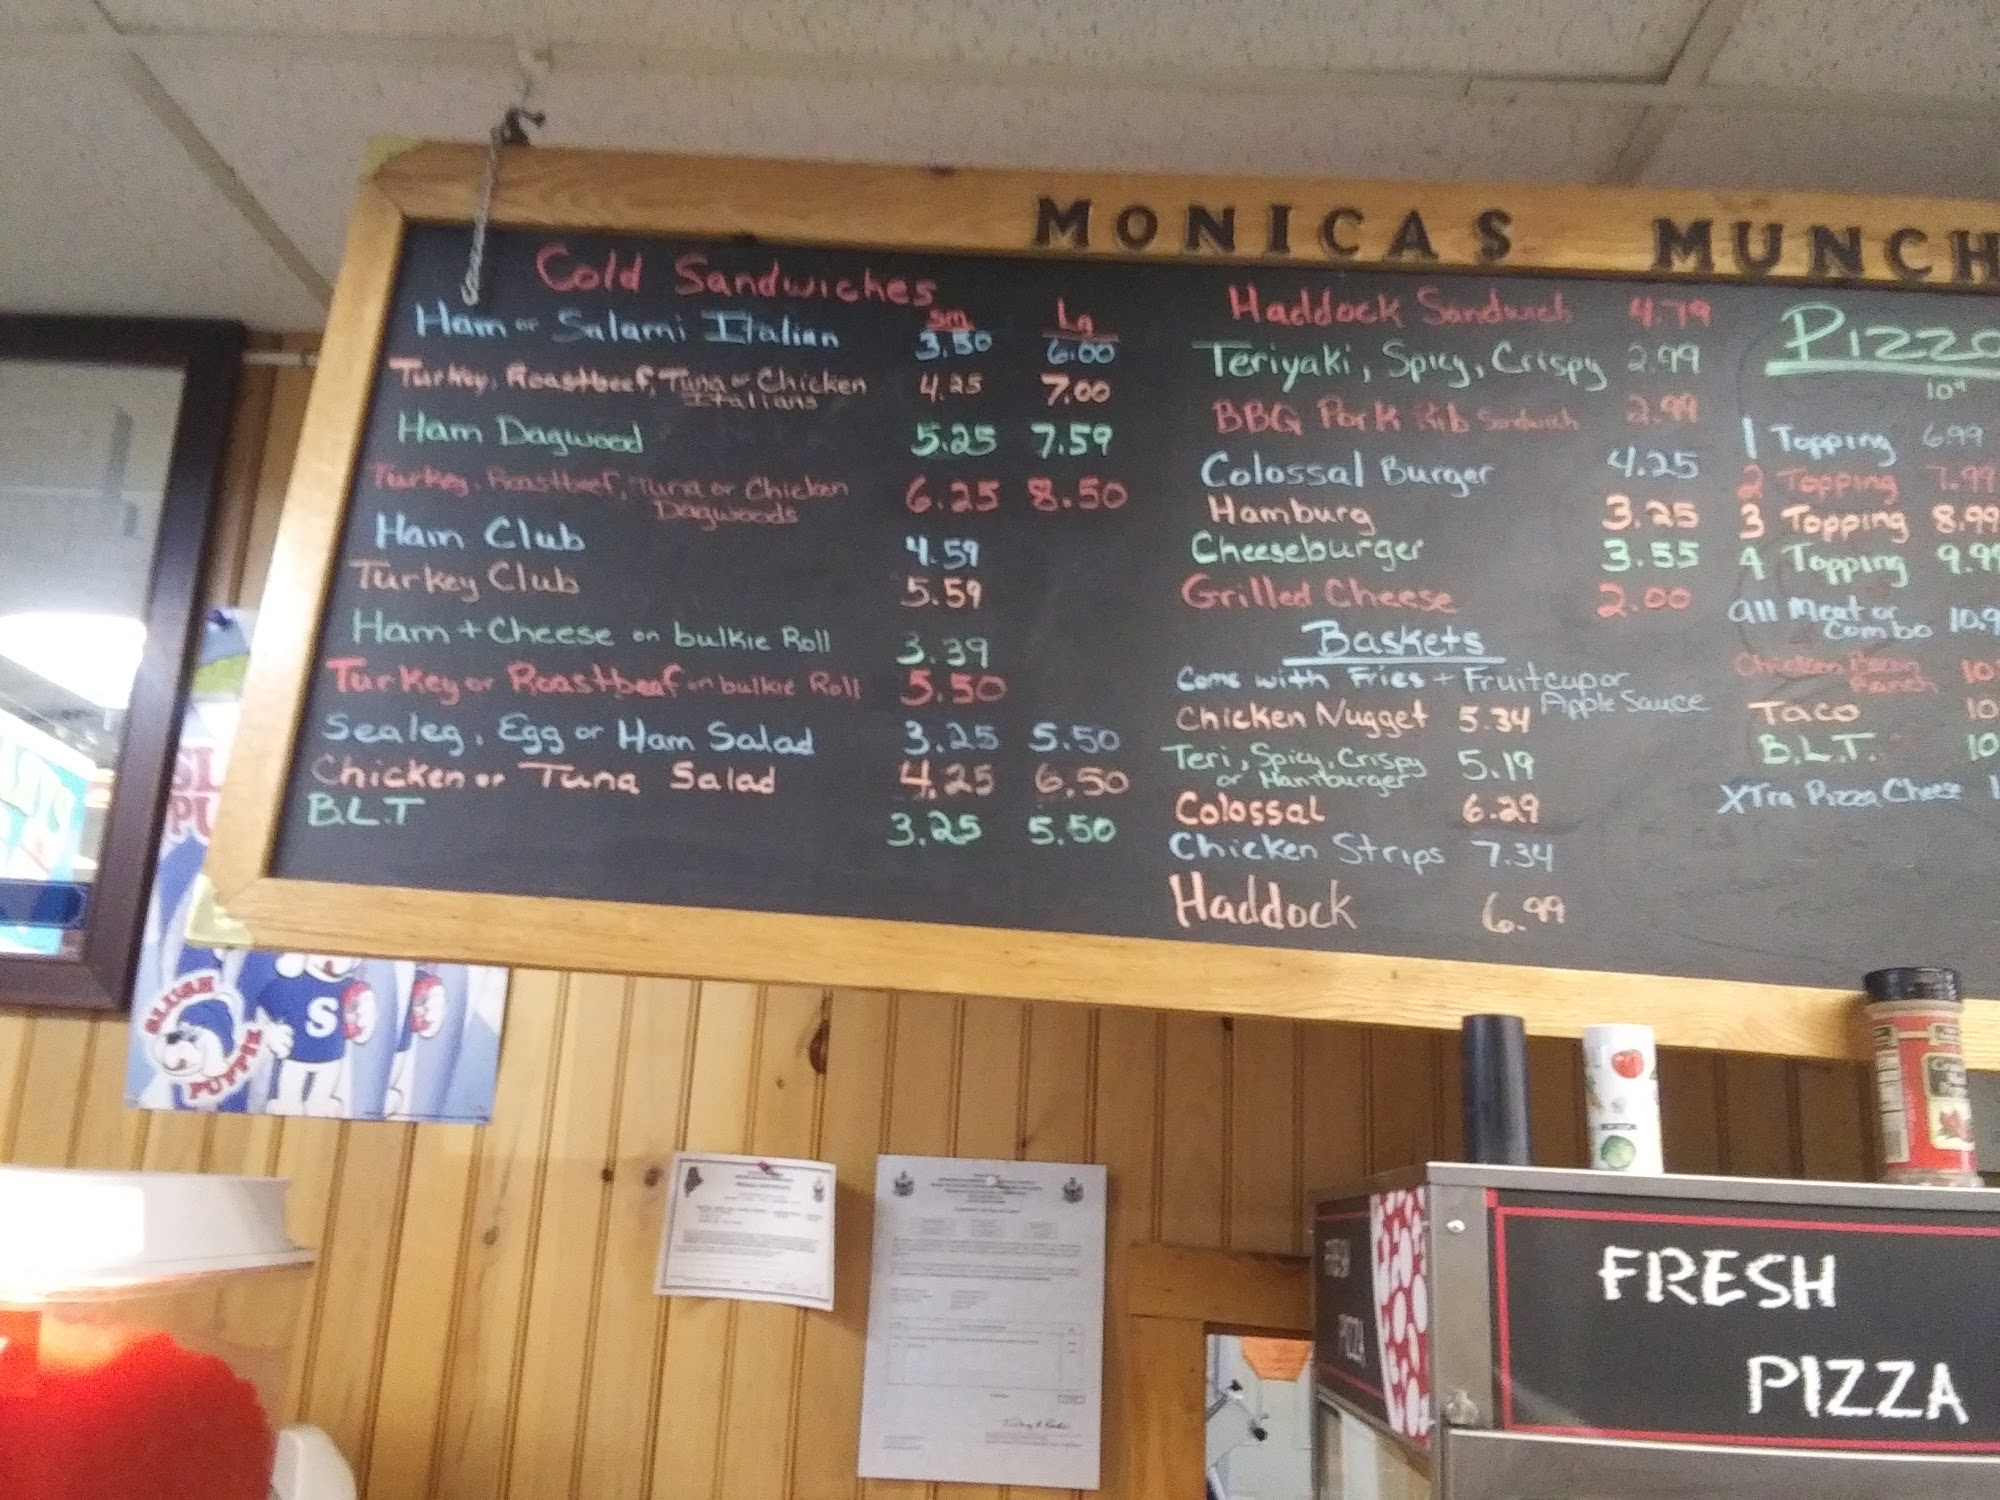 MONICAS MUNCH
Cold Sandwiches
sm Lg
Ham or Salami Italian 3.50 6.00
Turkey, Roastbeef, Tuna or Chicken 4.25 7.00
Italians
Ham Dagwood 5.25 7.59
Turkey, Roastbeef, Tuna or Chicken 6.25 8.50
Dagwoods
Ham Club 4.59
Turkey Club 5.59
Ham + Cheese on bulkie Roll 3.39
Turkey or Roastbeef on bulkie Roll 5.50
Sealeg, Egg or Ham Salad 3.25 5.50
Chicken or Tuna Salad 4.25 6.50
B.L.T 3.25 5.50
Haddock Sandwich 4.79
Teriyaki, Spicy, Crispy 2.99
BBQ Pork Rib Sandwich 2.99
Colossal Burger 4.25
Hamburg 3.25
Cheeseburger 3.55
Grilled Cheese 2.00
Baskets
Come with Fries + Fruitcup or
Apple Sauce
Chicken Nugget 5.34
Teri, Spicy, Crispy 5.19
or Hamburger
Colossal 6.29
Chicken Strips 7.34
Haddock 6.99
Pizza
10"
1 Topping 6.99
2 Topping 7.99
3 Topping 8.99
4 Topping 9.99
all Meat or 10.9
Combo
Chicken Bacon 10
Ranch
Taco 10
B.L.T. 10
XTra Pizza Cheese 1
SL
PU
SLUSH
PUPPIE
S
FRESH
PIZZA
FRESH
PIZZA